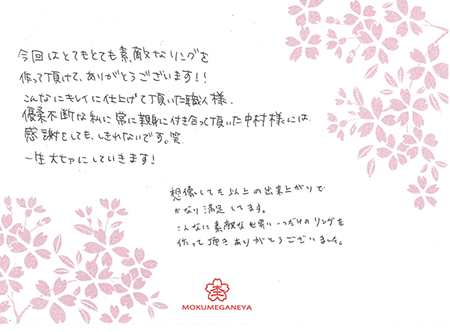 今回はとてもとても素敵なリングを
作って頂けて、ありがとうございます!!
こんなにキレイに仕上げて頂いた職人様、
優柔不断な私に常に親身に付き合って頂いた中村様には
感謝をしても、しきれないです。笑
一生大切にしていきます!
想像してた以上の出来上がりで
かなり満足してます。
こんなに素敵な世界に一つだけのリングを
作って頂きありがとうございました。
MOKUMEGANEYA